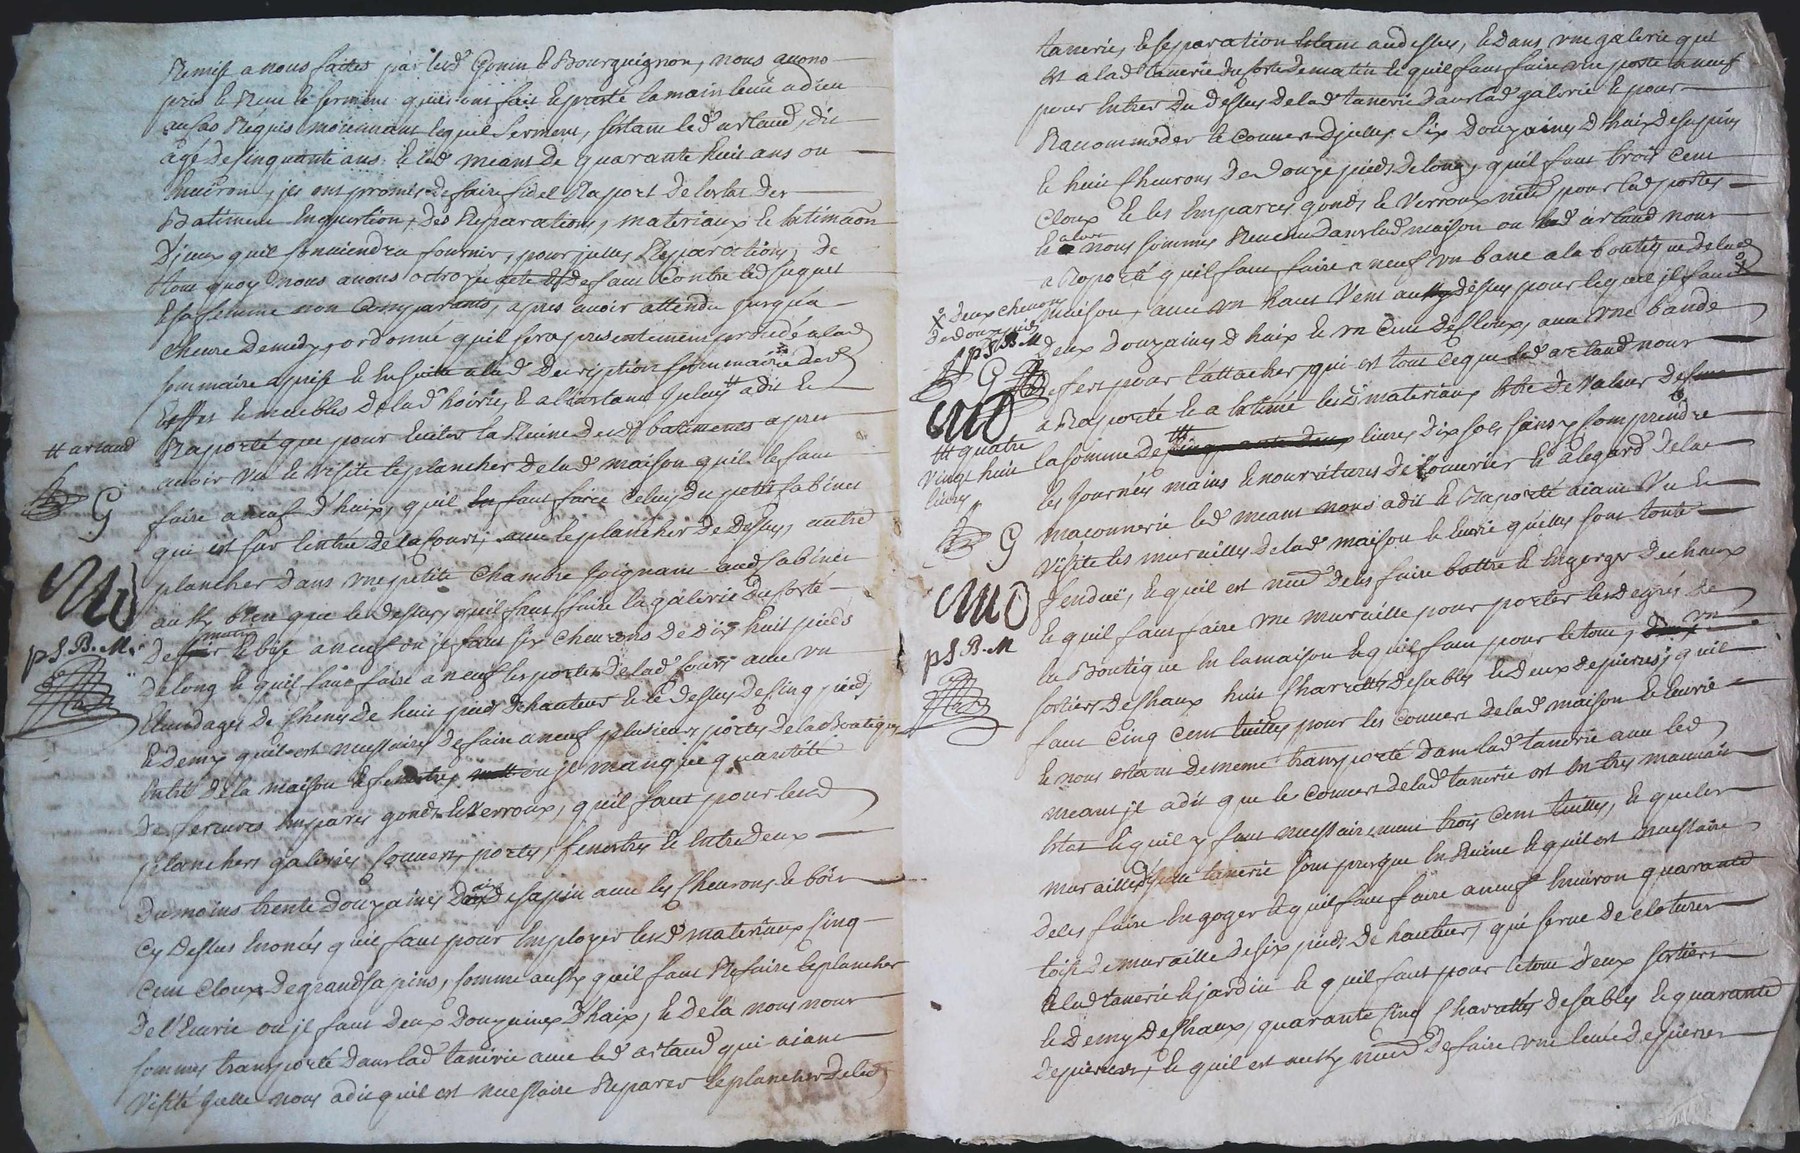 Remise a nous faites par led Gonin le Bourguignon, nous avons
pris le serment quils ont fait et presté la main levée a dieu
au cas Requis moiennant lequel serment, led artaud, dit
agé de cinquante ans et led meant de quarante huit ans ou
environ, ont promis de faire fidel Raport de letat des
Batiments en question, des Reparations, materiaux et
D'jceux quil conviendra fournir, pour jcelles Reparations, de
tout quoy nous avons octroyé acte et defaut contre led
et sa femme non comparants, apres avoir attendu jusqu'a
l'heure de midy, ordonné quil sera presentement procedé a lad
sommaire aprise et ensuitte a lad description sommaire des
effets et meubles de lad hoirie, et a l'instant jceluy # a dit et
Raporté que pour eviter la Ruine desd batiments apres
# artaud
avoir vu et visité le plancher de lad maison quil le faut
faire a neuf d'haix, quil faut faire celuy du petit cabinet
G
qui est sur l'entree de la cour, avec le plancher de dessus, autre
plancher dans une petite chambre joignant aud cabinet
aussy bien que le dessus, quil faut faire la galerie du coté
de matin et bise a neuf ou jl faut six chevrons de dix huit pieds
p S. B. M.
de long et quil faut faire a neuf les portes de lad cour avec un
de huit pieds de hauteur et de dessus de cinq pieds
et demy quil est necessaire de faire a neuf plusieurs portes de la Boutique
de la maison et fenetres ou jl manque quantité
de serrures emparres gonds et verroux, quil faut pour lesd
planchers galeries couverts portes, fenetres et entredeux
du moins trente douzaines d'aix de sapin avec les chevrons et bois
cy dessus enoncés quil faut pour employer lesd materiaux cinq
cent cloux de grand sapins, comme aussy quil faut Refaire le plancher
de l'Ecurie ou jl faut deux douzaines d'haix, et de la nous nous
sommes transporté dans lad tanerie avec led artaud qui aiant
visité jcelle nous a dit quil est necessaire Reparer le plancher de lad
tanerie, et separation etant au dessus, et dans une galerie qui
est a lad tanerie du coté de matin et quil faut faire une porte a neuf
pour entrer du dessus de lad tanerie dans lad galerie et pour
Raccommoder le couvert d'jcelles six douzaines d'haix de sapins
et huit chevrons de douze pieds de long, quil faut trois cent
cloux et les emparres gonds et verroux pour lad portes
et alors nous sommes Revenu dans lad maison ou led artaud nous
a Raporté quil faut faire a neuf un banc a la boutique de lad
maison, avec un haut vent au dessus pour lequel jl faut
deux chevrons
de douze pieds
p S B M
deux douzaines d'haix et un cent de cloux, avec une bande
G
de fer pour l'attacher, qui est tout ce que led artaud nous
a Raporté et a estimé lesd materiaux etre de valeur de
la somme de livres dix sols sans y comprendre
# quatre
vingt huit
livres
les journées mains et nourritures de l'ouvrier et a legard de la
maconnerie led meant nous a dit et Raporté aiant vu et
G
visité les murailles de lad maison et Ecurie quelles sont toutes
fendues, et quil est de les faire battre et engorger de chaux
et quil faut faire une muraille pour porter les degrés de
la Boutique en la maison et quil faut pour le tout, un
p S. B. M
sortiers de chaux huit charettes de sables et deux de pierres, quil
faut cinq cent tuilles pour les couvert de lad maison et Ecurie
et nous etant de meme transporté dans lad tanerie avec led
meant jl a dit que le couvert de lad tanerie est en tres mauvais
etat et quil y faut necessairement trois cent tuilles, et que les
murailles tanerie sont presque en Ruine et quil est necessaire
de les faire engoger et quil faut faire a neuf environ quarante
toise de muraille de six pieds de hauteur, qui serve de cloture
a lad tanerie et jardin et quil faut pour le tout deux sortiers
et demy de chaux, quarante cinq charettes de sables et quarante
de pierres, et quil est aussy de faire une levée de pierres